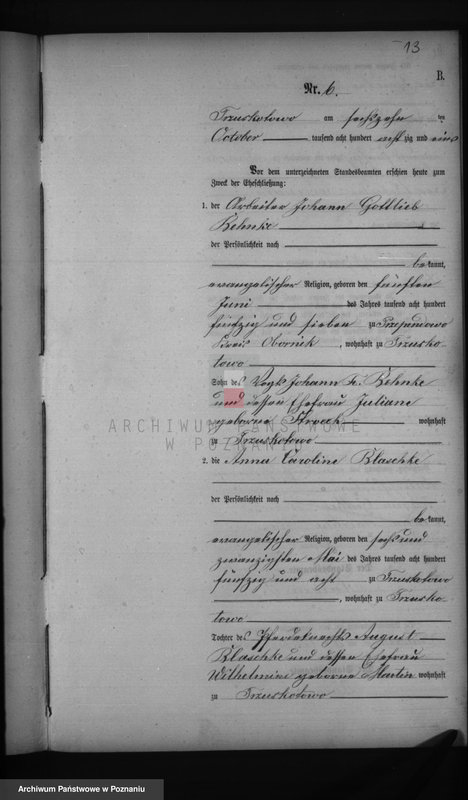 13
B.
Nr. 6.
Truskotowo am sechszehn ten
October tausend acht hundert acht zig und eins
Vor dem unterzeichneten Standesbeamten erschien heute zum
Zweck der Eheschließung:
1. der Arbeiter Johann Gottlieb
Behnke
der Persönlichkeit nach
bekannt,
evangelischer Religion, geboren den fünften
Juni des Jahres tausend acht hundert
fünfzig und sieben zu
Kreis Obornik, wohnhaft zu Trusko-
towo
Sohn des Vogts Johann Fr. Behnke
und dessen Ehefrau Juliane
geborene wohnhaft
ARCHIWUM PAŃSTWOWE
W POZNANIU
zu Truskotowo
2. die Anna Caroline Blaschke
der Persönlichkeit nach
bekannt,
evangelischer Religion, geboren den sechs und
zwanzigsten Mai des Jahres tausend acht hundert
fünfzig und acht zu Truskotowo
, wohnhaft zu Trusko-
towo
Tochter des Pferdeknechts August
Blaschke und dessen Ehefrau
Wilhelmine geborene Martin wohnhaft
zu Truskotowo
Archiwum Państwowe w Poznaniu